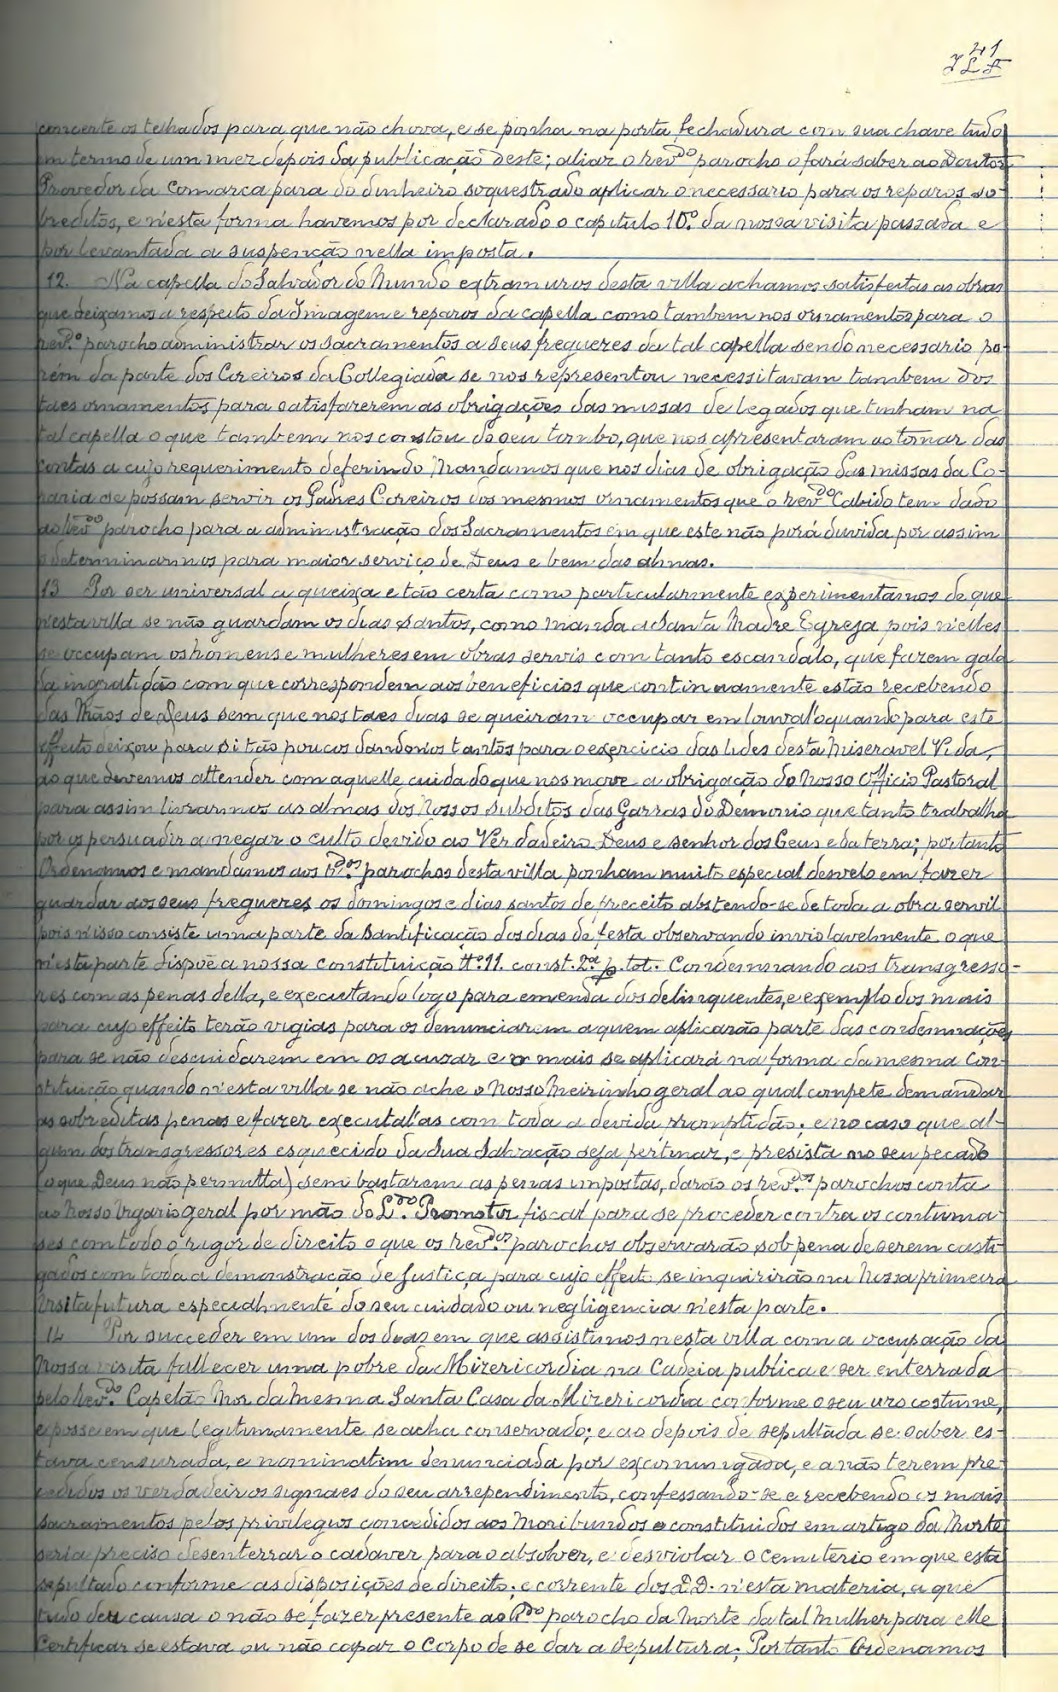 41
concerte os telhados para que não chova, e se ponha na porta fechadura com sua chave tudo
em termo de um mez depois da publicação deste; aliar o revdo parocho o fará saber ao Doutor
Provedor da Comarca para do dinheiro soquestrado aplicar o necessario para os reparos so-
breditos, e n'esta forma havemos por declarado o capitulo 10º. da nossa visita passada e
por levantada a suspenção nella imposta.
12. Na capella do Salvador do Mundo extramuros desta villa achamos satisfeitas as obras
que deixamos a respeito da Imagem e reparos da capella como tambem nos ornamentos para o
revdo. parocho administrar os sacramentos a seus freguezes da tal capella sendo necessario po-
rém da parte dos Coreiros da Collegiada se nos representou necessitavam tambem dos
taes ornamentos para satisfazerem as obrigações das missas de legados que tinham na
tal capella o que tambem nos constou do seu tombo, que nos apresentaram ao tomar das
contas a cujo requerimento deferindo Mandamos que nos dias de obrigação das missas da Co-
raria se possam servir os Padres Coreiros dos mesmos ornamentos que o revdo Cabido tem dado
ao revdo parocho para a administração dos Sacramentos em que este não porá duvida por assim
o determinarmos para maior serviço de Deus e bem das almas.
13 Por ser universal a queixa e tão certa como particularmente experimentamos de que
n'esta villa se não guardam os dias Santos, como manda a Santa Madre Egreja pois n'elles
se occupam os homens e mulheres em obras servis com tanto escandalo, que fazem gala
da ingratidão com que correspondem aos beneficios que continuamente estão recebendo
das Mãos de Deus sem que nos taes dias se queiram occupar em louval'o quando para este
effeito deixou para si tão poucos dandonos tantos para o exercicio das lides desta Miseravel Vida,
ao que devemos attender com aquelle cuidado que nos move a obrigação do Nosso Officio Pastoral
para assim livrarmos as almas dos Nossos Subditos das Garras do Demonio que tanto trabalha
por os persuadir a negar o culto devido ao Verdadeiro Deus e senhor dos Ceus e da terra; portanto
Ordenamos e mandamos aos Rdos. parochos desta villa ponham muito especial desvelo em fazer
guardar aos seus freguezes os domingos e dias santos de preceito abstendo-se de toda a obra servil
pois n'isso consiste uma parte da Santificação dos dias de festa observando inviolavelmente o que
n'esta parte dispõe a nossa constituição ttº 11. const. 2.ª p. tot. Condemnando aos transgresso-
res com as penas della, e executando logo para emenda dos delinquentes, e exemplo dos mais
para cujo effeito terão vigias para os denunciarem a quem aplicarão parte das condemnações
para se não descuidarem em os acuzar e o mais se aplicará na forma da mesma Con-
stituição quando n'esta villa se não ache o Nosso Meirinho geral ao qual compete demandar
as sobreditas penas e fazer executal'as com toda a devida promptidão; e no caso que al-
gum dos transgressores esquecido da Sua Salvação seja pertinaz, e presista no seu pecado
(o que Deus não permitta) sem bastarem as penas impostas, darão os revdos parochos conta
ao Nosso Vigario geral por mão do Ldo. Promotor fiscal para se proceder contra os contuma-
ses com todo o rigor de direito o que os revdos parochos observarão sob pena de serem casti-
gados com toda a demonstração de Justiça para cujo effeito se inquirirão na Nossa primeira
Visita futura especialmente do seu cuidado ou negligencia n'esta parte.
14 Por succeder em um dos dias em que assistimos nesta villa com a occupação da
Nossa visita fallecer uma pobre da Mizericordia na Cadeia publica e ser enterrada
pelo revdo. Capelão Mor da Mesma Santa Casa da Mizericordia conforme o seu uzo costume,
e posse em que legitimamente se acha conservado; e ao depois de sepultada se saber es-
tava censurada, e nominatim denunciada por excomungada, e a não terem pre-
cedidos os verdadeiros signaes do seu arrependimento, confessando-se e recebendo os mais
sacramentos pelos privilegios concedidos aos Moribundos e constituidos em artigo da Morte
seria preciso desenterrar o cadaver para o absolver, e desviolar o cemiterio em que está
sepultado conforme as disposições de direito; e corrente dos DD. n'esta materia, a que
tudo deu causa o não se fazer presente ao Rdo parocho da Morte da tal Mulher para elle
Certificar se estava ou não capaz o Corpo de se dar a Sepultura; Portanto Ordenamos